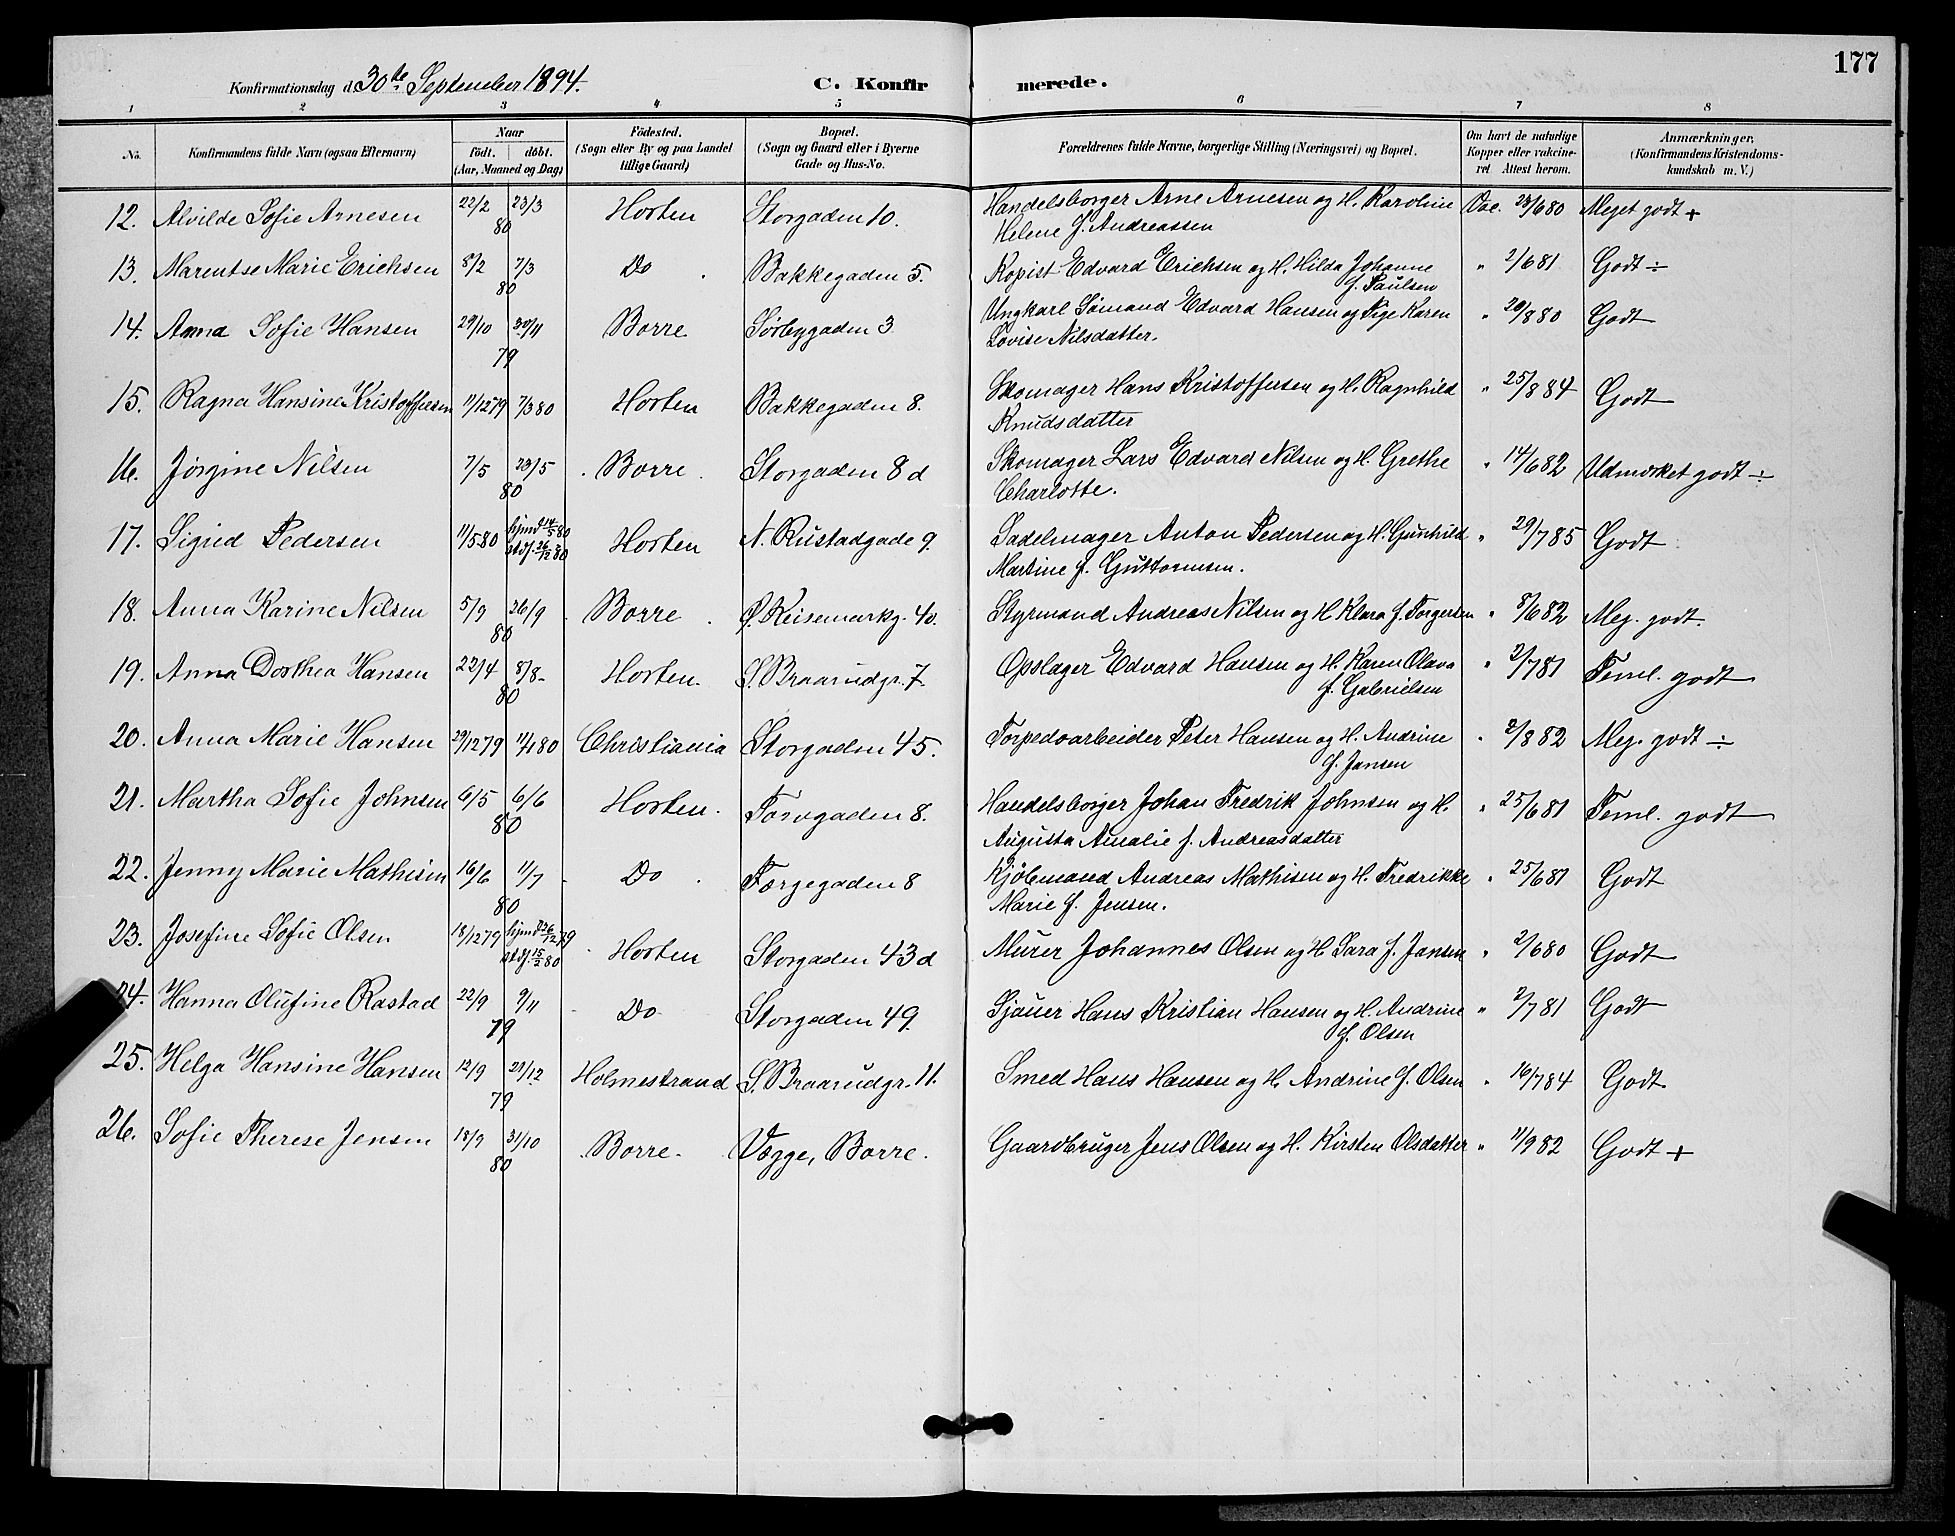 177
Konfirmationsdag d. 30te September 1894.
C. Konfirmerede.
1 2 3 4 5 6 7 8
No. Konfirmandens fulde Navn (ogsaa Efternavn) Naar født. døbt. (Aar, Maaned og Dag) Fødested. (Sogn eller By og paa Landet tillige Gaard) Bopæl. (Sogn og Gaard eller i Byerne Gade og Hus-No. Forældrenes fulde Navne, borgerlige Stilling (Næringsvei) og Bopæl. Om havt de naturlige Kopper eller vakcineret Attest herom. Anmærkninger, (Konfirmandens Kristendomskundskab m. V.)
12. Alvilde Sofie Arnesen 22/2 23/3 80 Horten Storgaden 10. Handelsborger Arne Arnesen og H. Karoline Vac. 23/6 80 Meget godt +
Helene f. Andreassen
13. Marentse Marie Erichsen 8/2 7/3 80 Do Bakkegaden 5. Kopist Edvard Erichsen og H. Hilda Johanne " 2/6 81 Godt ÷
f. Paulsen
14. Anna Sofie Hansen 29/10 30/11 79 Borre Sørbygaden 3 Ungkarl Sømand Edvard Hansen og Pige Karen " 26/8 80 Godt
Lovise Nilsdatter.
15. Ragna Hansine Kristoffersen 11/12 79 7/3 80 Horten Bakkegaden 8. Skomager Hans Kristoffersen og H. Ragnhild " 25/8 84 Godt
Knudsdatter
16. Jørgine Nilsen 7/5 23/5 80 Borre Storgaden 8 d Skomager Lars Edvard Nilsen og H. Grethe " 14/6 82 Udmærket godt ÷
Charlotte.
17. Sigrid Pedersen 11/5 80 hjmd 14/5 80 stdf. 26/12 80 Horten N. Rustadgade 9. Sadelmager Anton Pedersen og H. Gunhild " 29/7 85 Godt
Martine f. Guttormsen.
18. Anna Karine Nilsen 5/9 26/9 80 Borre Ø. Keisemarkg. 40. Styrmand Andreas Nilsen og H. Klara f. Torgersen " 8/6 82 Meg. godt.
19. Anna Dorthea Hansen 22/4 8/8 80 Horten S. Braarudgr. 7. Opslager Edvard Hansen og H. Karen Olava " 2/7 81 Teml. godt
f. Gabrielsen
20. Anna Marie Hansen 29/12 79 11/4 80 Christiania Storgaden 45. Torpedoarbeider Peter Hansen og H. Andrine " 2/8 82 Meg. godt ÷
f. Jansen
21. Martha Sofie Johnsen 6/5 6/6 80 Horten Torvgaden 8. Handelsborger Johan Fredrik Johnsen og H. " 25/6 81 Teml. godt
Augusta Amalie f. Andreasdatter
22. Jenny Marie Mathisen 16/6 11/7 80 Do Færgegaden 8 Kjøbmand Andreas Mathisen og H. Fredrikke " 25/6 81 Godt
Marie f. Jensen.
23. Josefine Sofie Olsen 18/12 79 hjmd 26/12 79 stdf. 15/2 80 Horten Storgaden 43 d Murer Johannes Olsen og H. Sara f. Jansen " 2/6 80 Godt
24. Hanna Olufine Rastad 22/9 9/11 79 Do Storgaden 49. Sjauer Hans Kristian Hansen og H. Andrine " 2/7 81 Godt
f. Olsen
25. Helga Hansine Hansen 12/9 29/12 79 Holmestrand S. Braarudgr. 11. Smed Hans Hansen og H. Andrine f. Olsen " 16/7 84 Godt
26. Sofie Therese Jensen 18/9 31/10 80 Borre. Vægge, Borre. Gaardbruger Jens Olsen og H. Kirsten Olsdatter " 11/9 82 Godt +